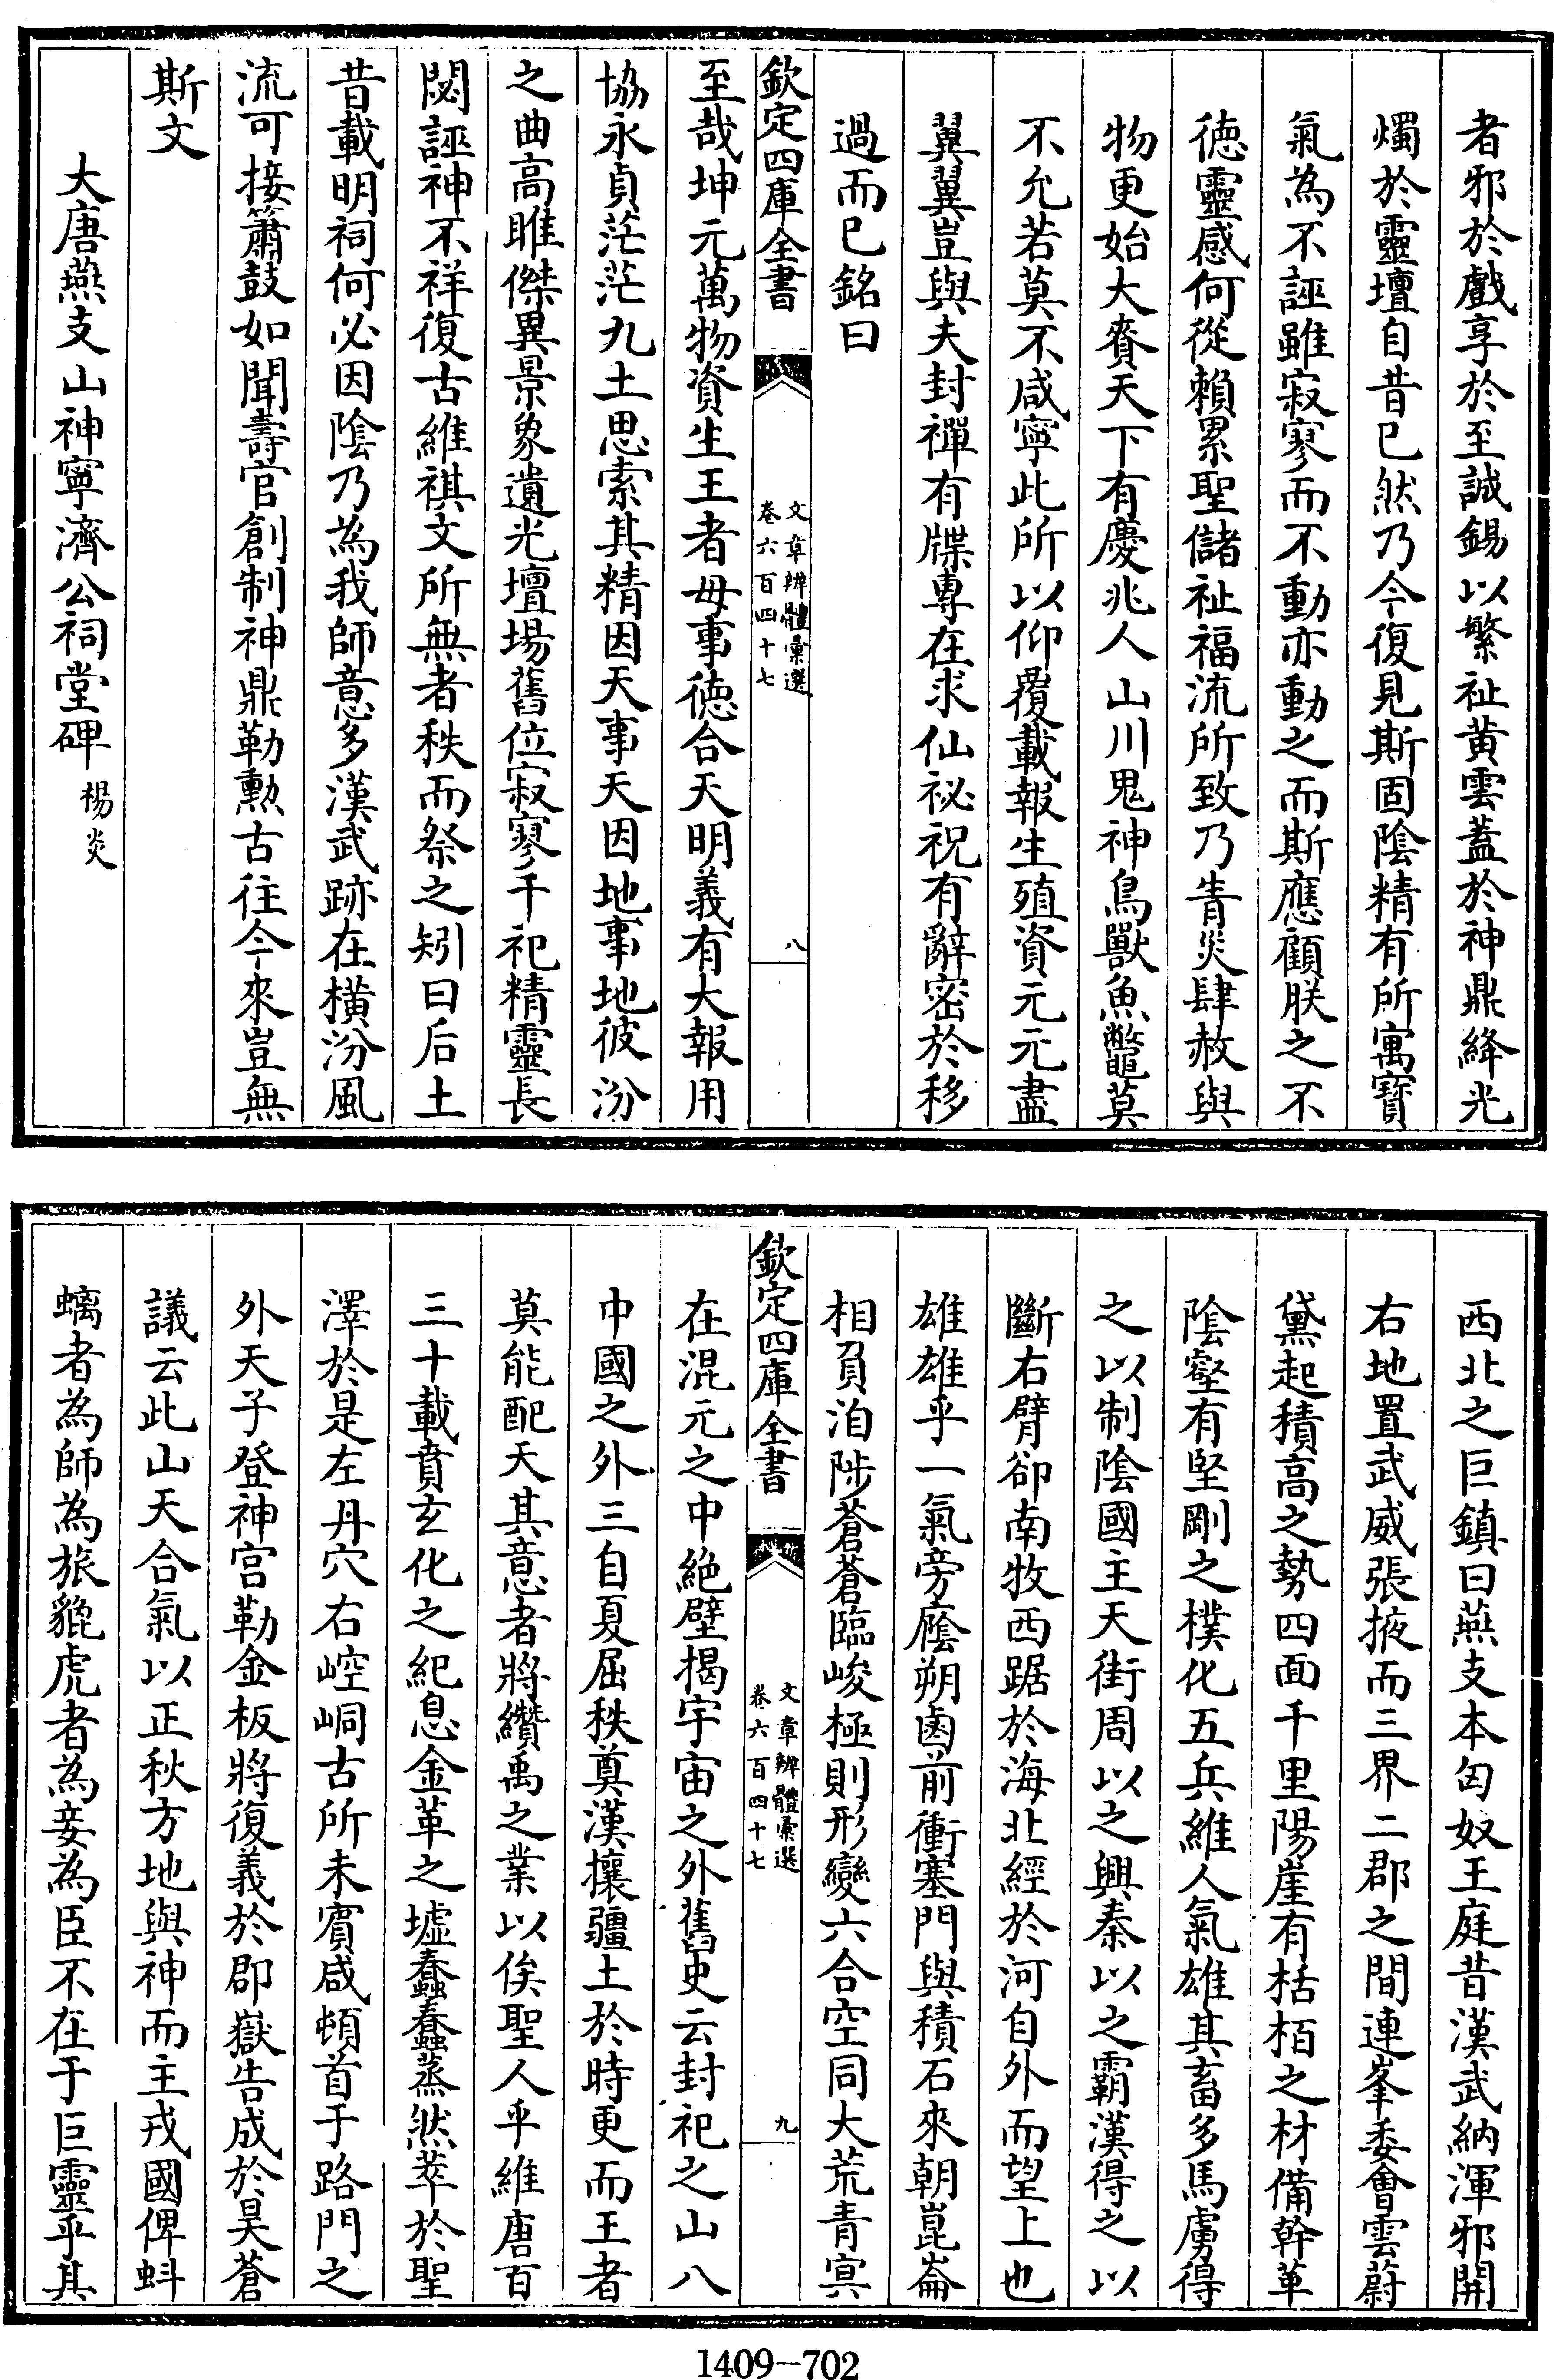 者邪於戲享於至誠錫以繁祉黄雲蓋於神鼎絳光
燭於靈壇自昔已然乃今復見斯固陰精有所寓寳
氣為不誣雖寂寥而不動亦動之而斯應顧朕之不
徳靈感何從賴累聖儲祉福流所致乃眚災肆赦與
物更始大賚天下有慶兆人山川鬼神鳥獸魚鼈莫
不允若莫不咸寧此所以仰覆載報生殖資元元盡
翼翼豈與夫封禪有牒専在求仙祕祝有辭密於移
過而已銘曰
欽定四庫全書
文章辨體彙選
卷六百四十七
八
至哉坤元萬物資生王者母事徳合天明義有大報用
協永貞茫茫九土思索其精因天事天因地事地彼汾
之曲高睢傑異景象遺光壇場舊位寂寥千祀精靈長
閟誣神不祥復古維祺文所無者秩而祭之矧曰后土
昔載明祠何必因陰乃為我師意多漢武跡在横汾風
流可接簫鼓如聞壽官創制神鼎勒勲古往今來豈無
斯文
大唐燕支山神寧濟公祠堂碑 楊炎
西北之巨鎮曰燕支本匈奴王庭昔漢武納渾邪開
右地置武威張掖而三界二郡之間連峯委會雲蔚
黛起積高之勢四面千里陽崖有栝栢之材備幹革
陰壑有堅剛之樸化五兵維人氣雄其畜多馬虜得
之以制陰國主天街周以之興秦以之霸漢得之以
斷右臂卻南牧西踞於海北經於河自外而望上也
雄雄乎一氣旁廕朔鹵前衝塞門與積石來朝崑崙
相負洎陟蒼蒼臨峻極則形變六合空同大荒青㝠
欽定四庫全書
文章辨體彙選
卷六百四十七
九
在混元之中絶壁揭宇宙之外舊史云封祀之山八
中國之外三自夏屈秩奠漢攘疆土於時更而王者
莫能配天其意者將纘禹之業以俟聖人乎維唐百
三十載賁玄化之紀息金革之墟蠢蠢蒸然萃於聖
澤於是左丹穴右崆峒古所未賓咸頓首于路門之
外天子登神宫勒金板將復義於郡嶽告成於昊蒼
議云此山天合氣以正秋方地與神而主戎國俾蚪
螭者為師為旅貔虎者為妾為臣不在于巨靈乎其
1409-702